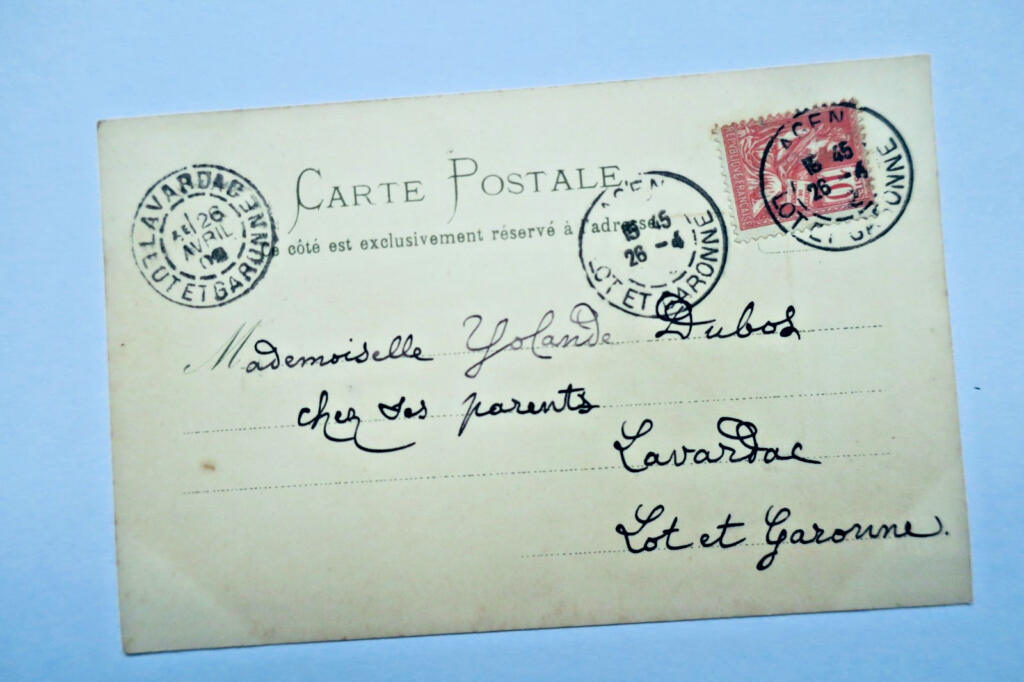 CARTE POSTALE
côté est exclusivement réservé à l'adresse
AGEN
15 45
26 -4
LOT ET GARONNE
AGEN
15 45
26 -4
LOT ET GARONNE
RÉPUBLIQUE FRANÇAISE
10
LAVARDAC
26
AVRIL
LOT ET GARONNE
Mademoiselle Yolande Dubos
chez ses parents
Lavardac
Lot et Garonne.